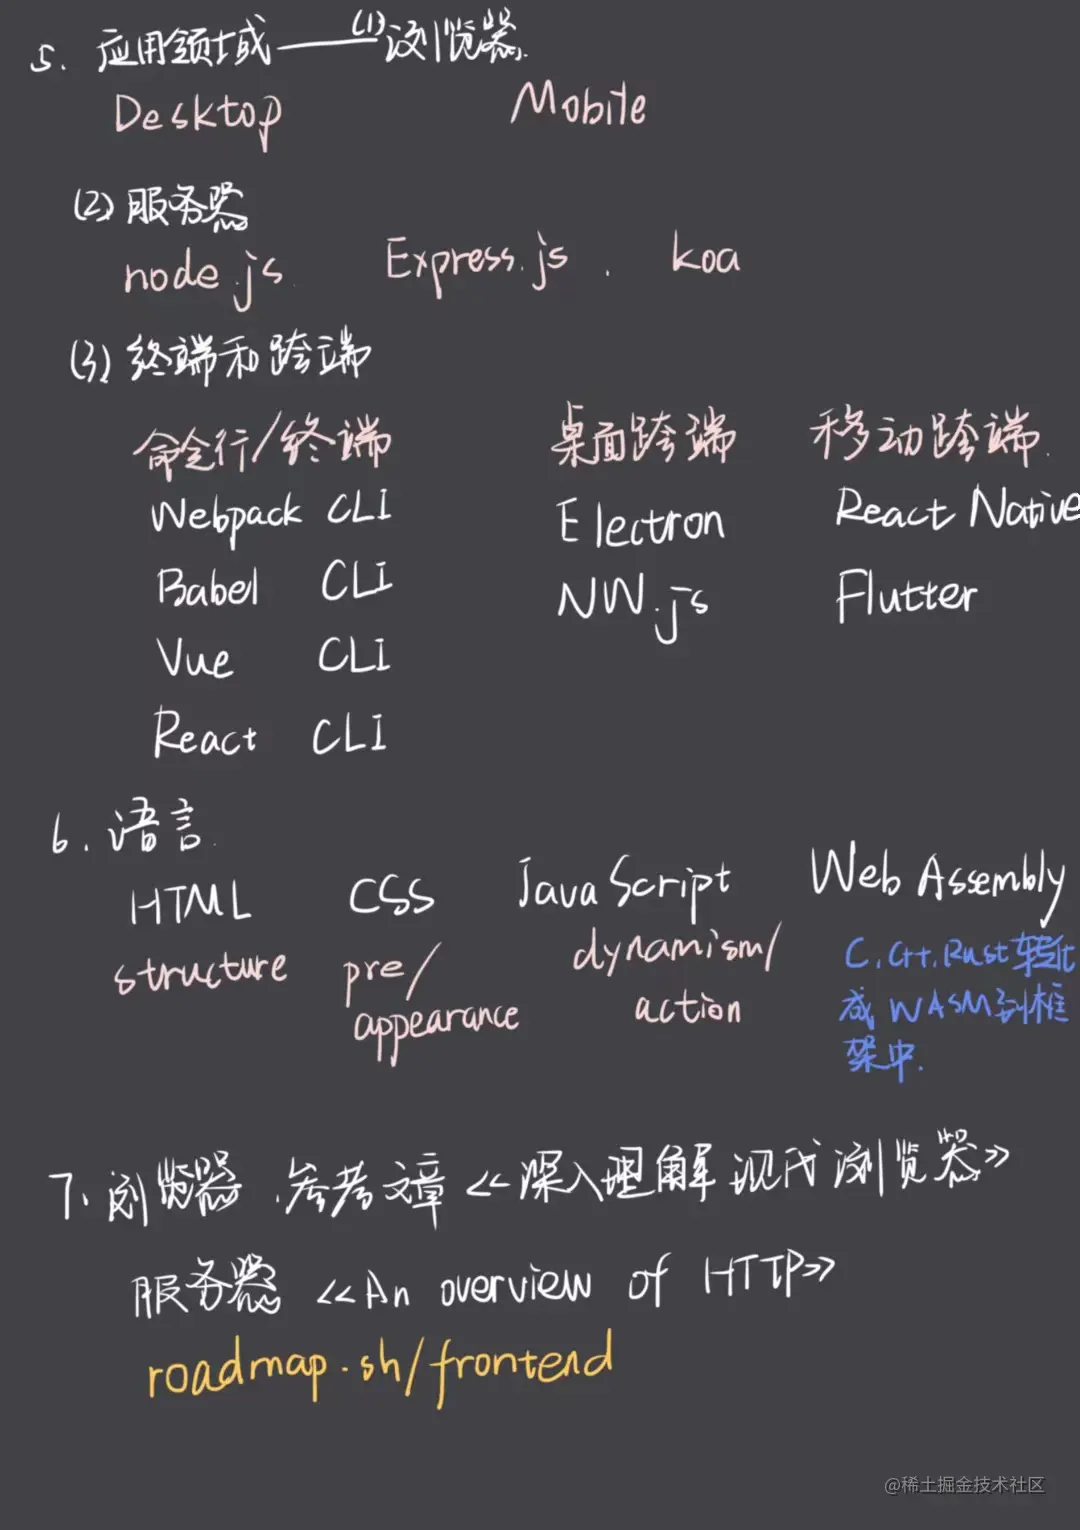 5. 应用领域——(1)浏览器.
Desktop Mobile
(2) 服务器
node.js Express.js . koa
(3) 终端和跨端
命令行/终端 桌面跨端 移动跨端.
Webpack CLI Electron React Native
Babel CLI NW.js Flutter
Vue CLI
React CLI
6. 语言.
HTML CSS JavaScript Web Assembly
structure pre/ dynamism/ C.C++.Rust转化
appearance action 成 WASM到框
架中.
7. 浏览器.参考文章《深入理解现代浏览器》
服务器《An overview of HTTP》
roadmap.sh/frontend
@稀土掘金技术社区